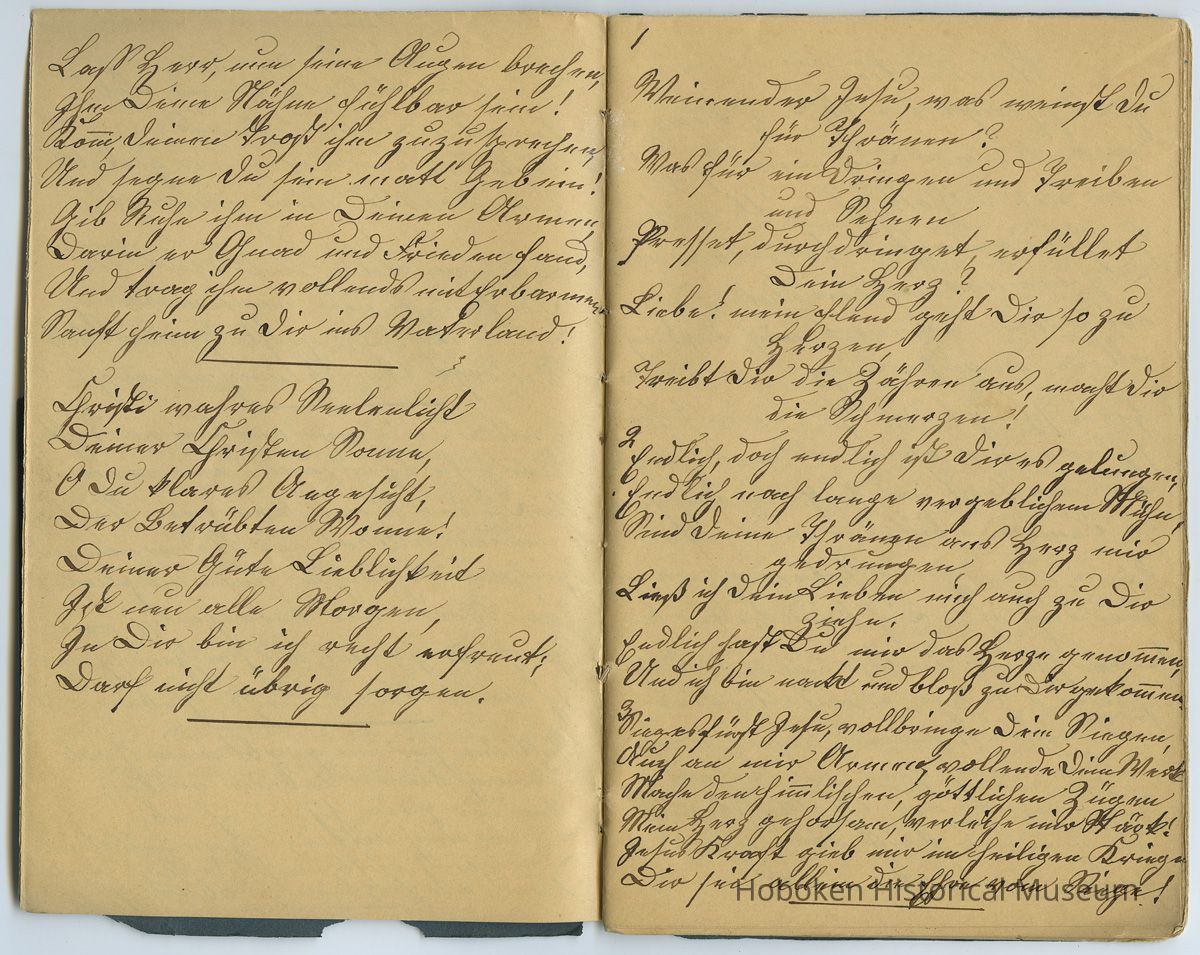 Laß Herr, nun seine Augen brechen,
Ihm Deine Nähe fühlbar sein!
Komm, Deinen Trost ihm zuzusprechen,
Und segne Du sein matt Gebein!
Gib Ruhe ihm in Deinen Armen,
Darin er Gnad und Frieden fand,
Und trag ihn vollends mit Erbarmen
Sanft heim zu Dir ins Vaterland!
Christi wahres Seelenlicht
Deiner Christen Sonne,
O Du klares Angesicht,
Der Betrübten Wonne!
Deiner Güte Lieblichkeit
Ist neu alle Morgen,
In Dir bin ich recht erfreut;
Darf nicht übrig sorgen.
1
Weinender Jesu, was weinst Du
für Thränen?
Was für ein Dringen und Treiben
und Sehnen
Presset, durchdringet, erfüllet
Dein Herz?
Liebe! mein Elend geht Dir so zu
Herzen,
Treibt Dir die Zähren aus, macht Dir
die Schmerzen!
2
Endlich, doch endlich ist Dir es gelungen,
Endlich nach lange vergeblichem Mühn,
Sind Deine Thränen ans Herz mir
gedrungen
Ließ ich Dein Lieben mich auch zu Dir
ziehn.
Endlich hast Du mir das Herze genommen,
Und ich bin nackt und bloß zu Dir gekommen.
3
Siegesfürst Jesu, vollbringe Dein Siegen
Auch an mir Armen, vollende Dein Werk
Mache den himmlischen, göttlichen Zügen
Mein Herz gehorsam, verleihe mir Stärk!
Jesus Kraft gieb mir im heiligen Kriege
Dir sei allein die Ehre vom Siege!
Hoboken Historical Museum